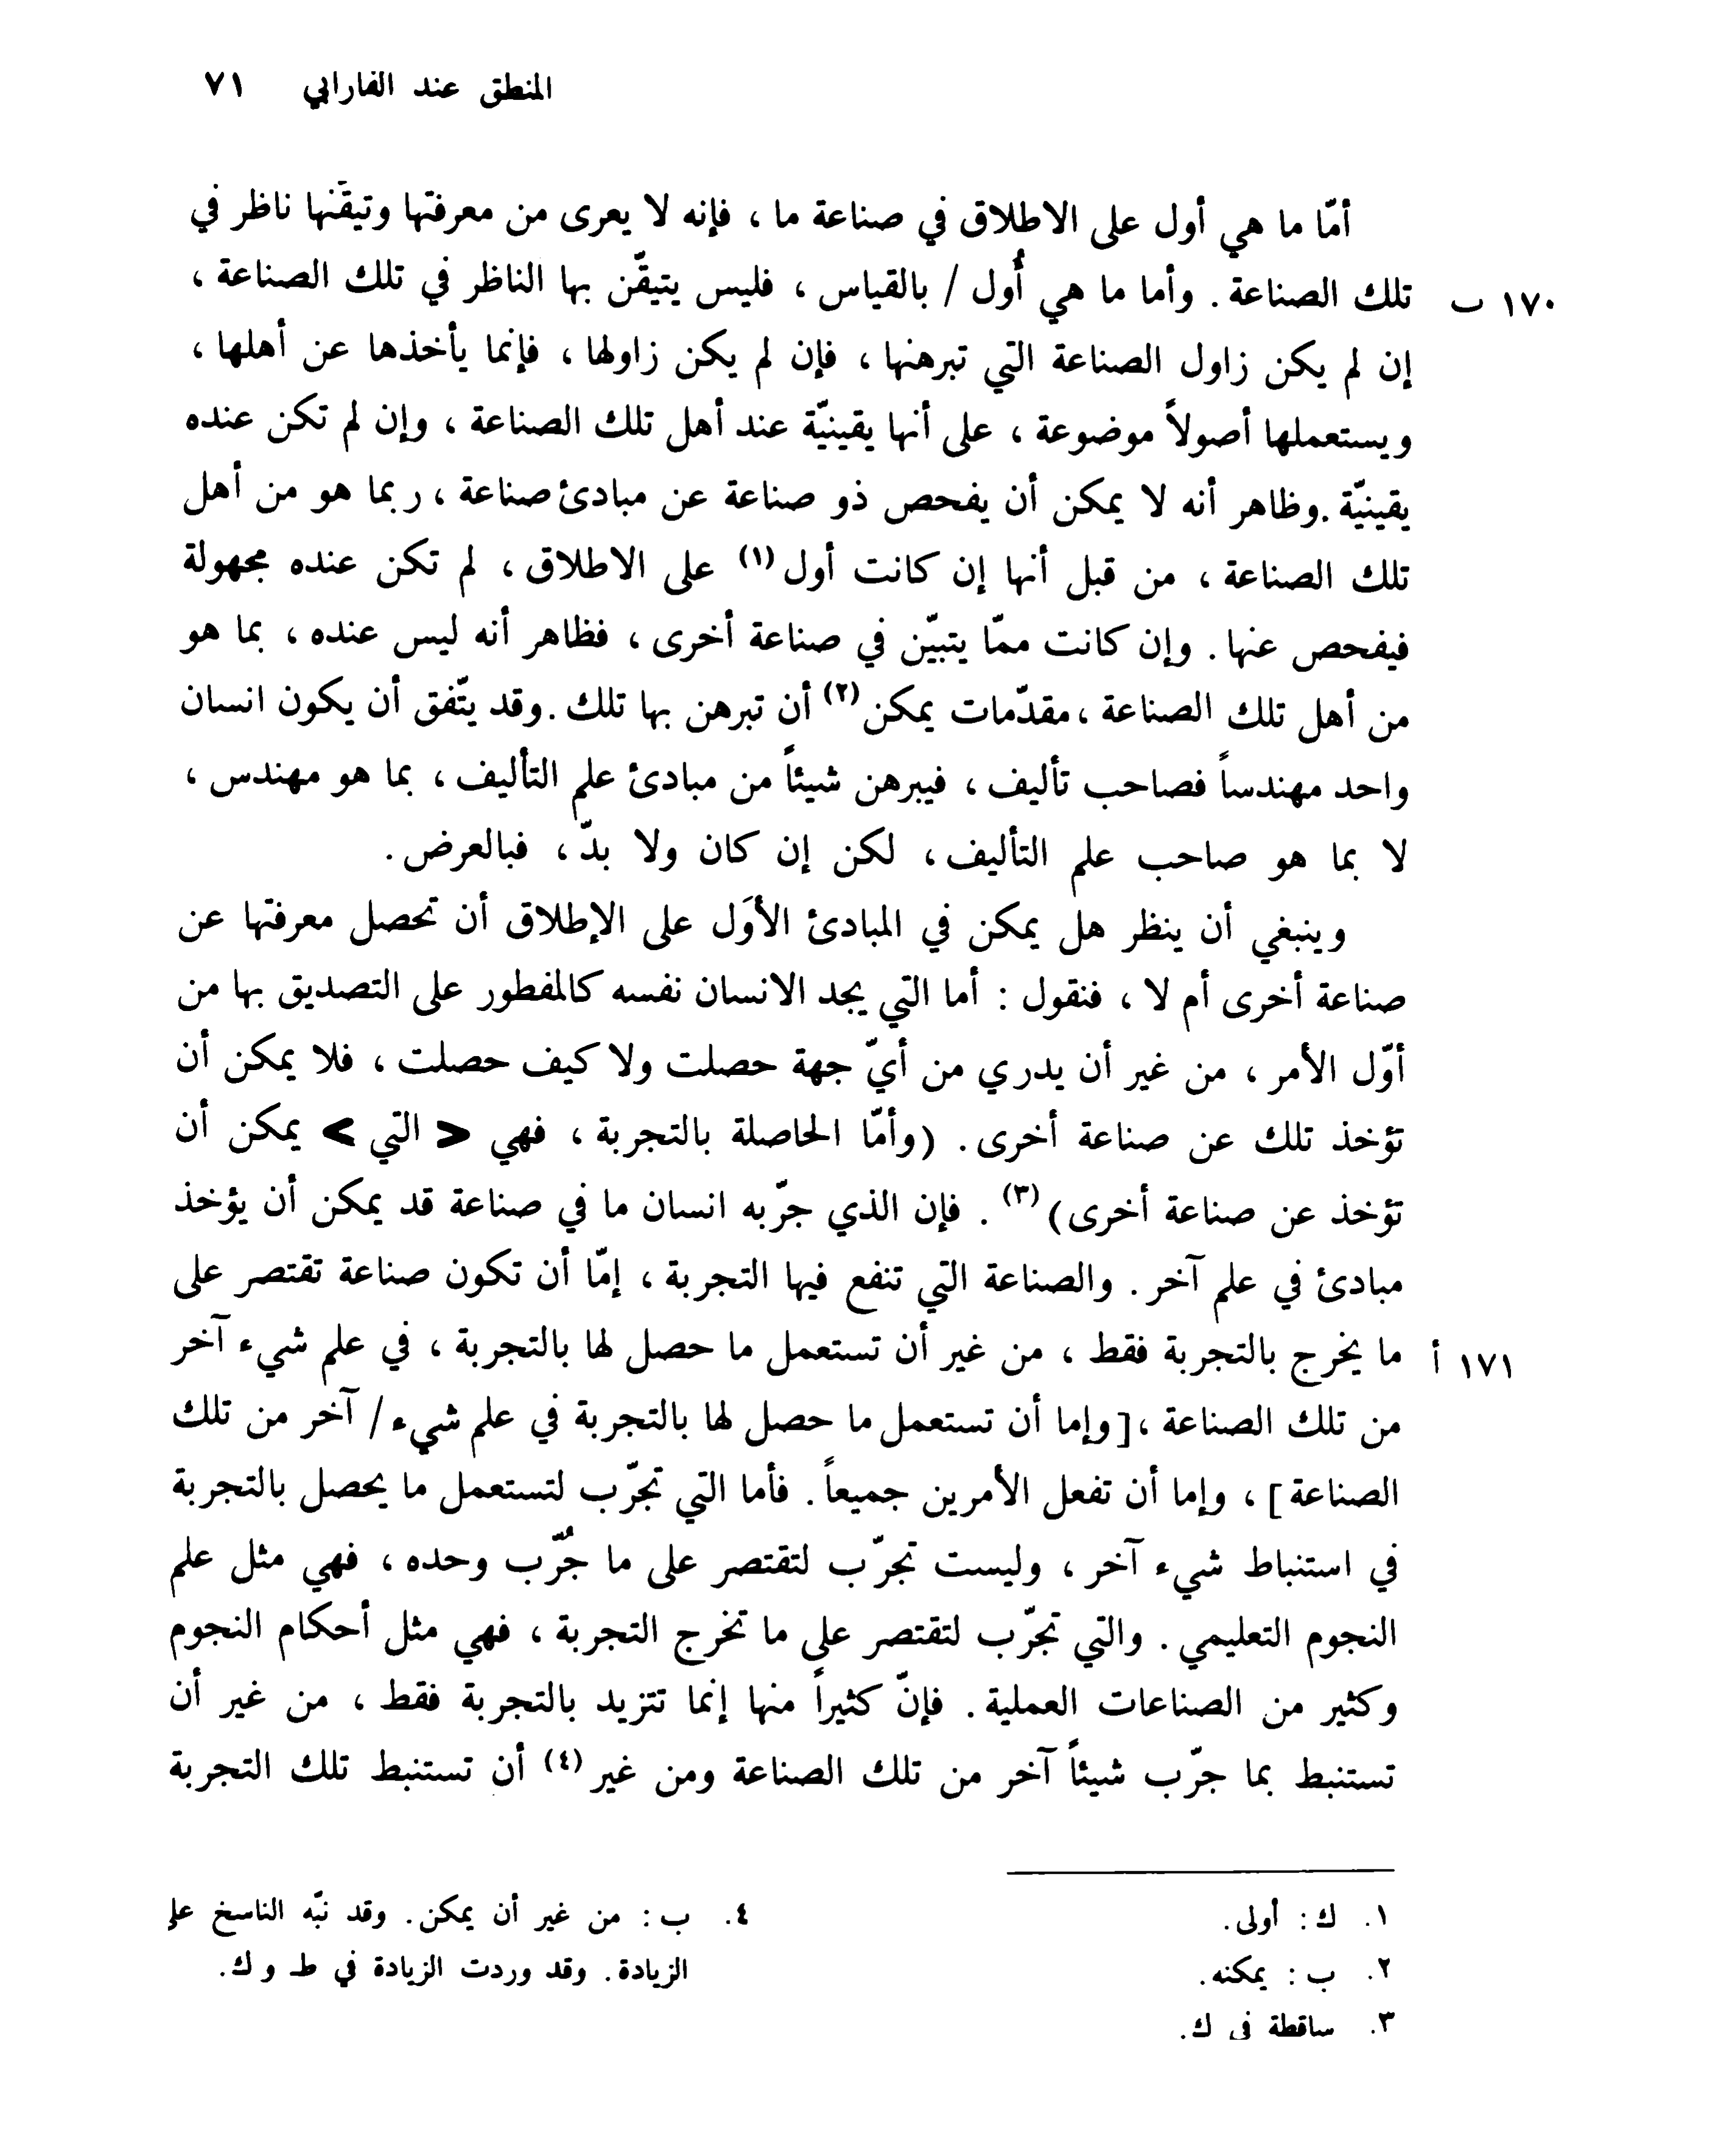 المنطق عند الفارابي ٧١
أمّا ما هي أول على الاطلاق في صناعة ما ، فإنه لا يعرى من معرفتها وتيقّنها ناظر في
١٧٠ ب تلك الصناعة . وأما ما هي أُول / بالقياس ، فليس يتيقّن بها الناظر في تلك الصناعة ،
إن لم يكن زاول الصناعة التي تبرهنها ، فإن لم يكن زاولها ، فإنما يأخذها عن أهلها ،
ويستعملها أصولاً موضوعة ، على أنها يقينيّة عند أهل تلك الصناعة ، وإن لم تكن عنده
يقينيّة .وظاهر أنه لا يمكن أن يفحص ذو صناعة عن مبادئ صناعة ، ربما هو من أهل
تلك الصناعة ، من قبل أنها إن كانت أول (١) على الاطلاق ، لم تكن عنده مجهولة
فيفحص عنها . وإن كانت ممّا يتبيّن في صناعة أخرى ، فظاهر أنه ليس عنده ، بما هو
من أهل تلك الصناعة ، مقدّمات يمكن (٢) أن تبرهن بها تلك . وقد يتّفق أن يكون انسان
واحد مهندساً فصاحب تأليف ، فيبرهن شيئاً من مبادئ علم التأليف ، بما هو مهندس ،
لا بما هو صاحب علم التأليف ، لكن إن كان ولا بدّ ، فبالعرض .
وينبغي أن ينظر هل يمكن في المبادئ الأوَل على الإطلاق أن تحصل معرفتها عن
صناعة أخرى أم لا ، فنقول : أما التي يجد الانسان نفسه كالمفطور على التصديق بها من
أوّل الأمر ، من غير أن يدري من أيّ جهة حصلت ولا كيف حصلت ، فلا يمكن أن
تؤخذ تلك عن صناعة أخرى . (وأمّا الحاصلة بالتجربة ، فهي < التي > يمكن أن
تؤخذ عن صناعة أخرى) (٣) . فإن الذي جرّبه انسان ما في صناعة قد يمكن أن يؤخذ
مبادئ في علم آخر . والصناعة التي تنفع فيها التجربة ، إمّا أن تكون صناعة تقتصر على
١٧١ أ ما يخرج بالتجربة فقط ، من غير أن تستعمل ما حصل لها بالتجربة ، في علم شيء آخر
من تلك الصناعة ، [وإما أن تستعمل ما حصل لها بالتجربة في علم شيء / آخر من تلك
الصناعة] ، وإما أن تفعل الأمرين جميعاً . فأما التي تجرّب لتستعمل ما يحصل بالتجربة
في استنباط شيء آخر ، وليست تجرّب لتقتصر على ما جُرّب وحده ، فهي مثل علم
النجوم التعليمي . والتي تجرّب لتقتصر على ما تخرج التجربة ، فهي مثل أحكام النجوم
وكثير من الصناعات العملية . فإنّ كثيراً منها إنما تتزيد بالتجربة فقط ، من غير أن
تستنبط بما جرّب شيئاً آخر من تلك الصناعة ومن غير (٤) أن تستنبط تلك التجربة
١. ك : أولى .
٢. ب : يمكنه .
٣. ساقطة في ك .
٤. ب : من غير أن يمكن . وقد نبّه الناسخ على
الزيادة . وقد وردت الزيادة في ط و ك .